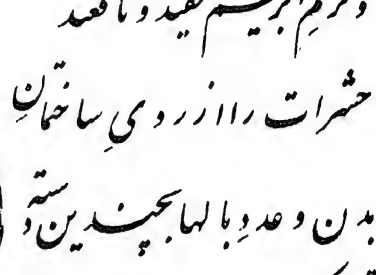 و کرم ابریشم مفید و نافعند
حشرات را از روی ساختمانِ
بدن و عددِ بالها بچندین دسته